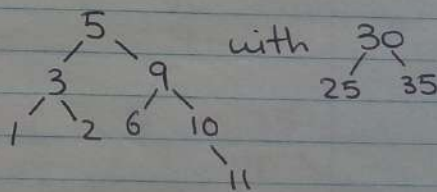 5 with 30
3 9 25 35
1 2 6 10
11